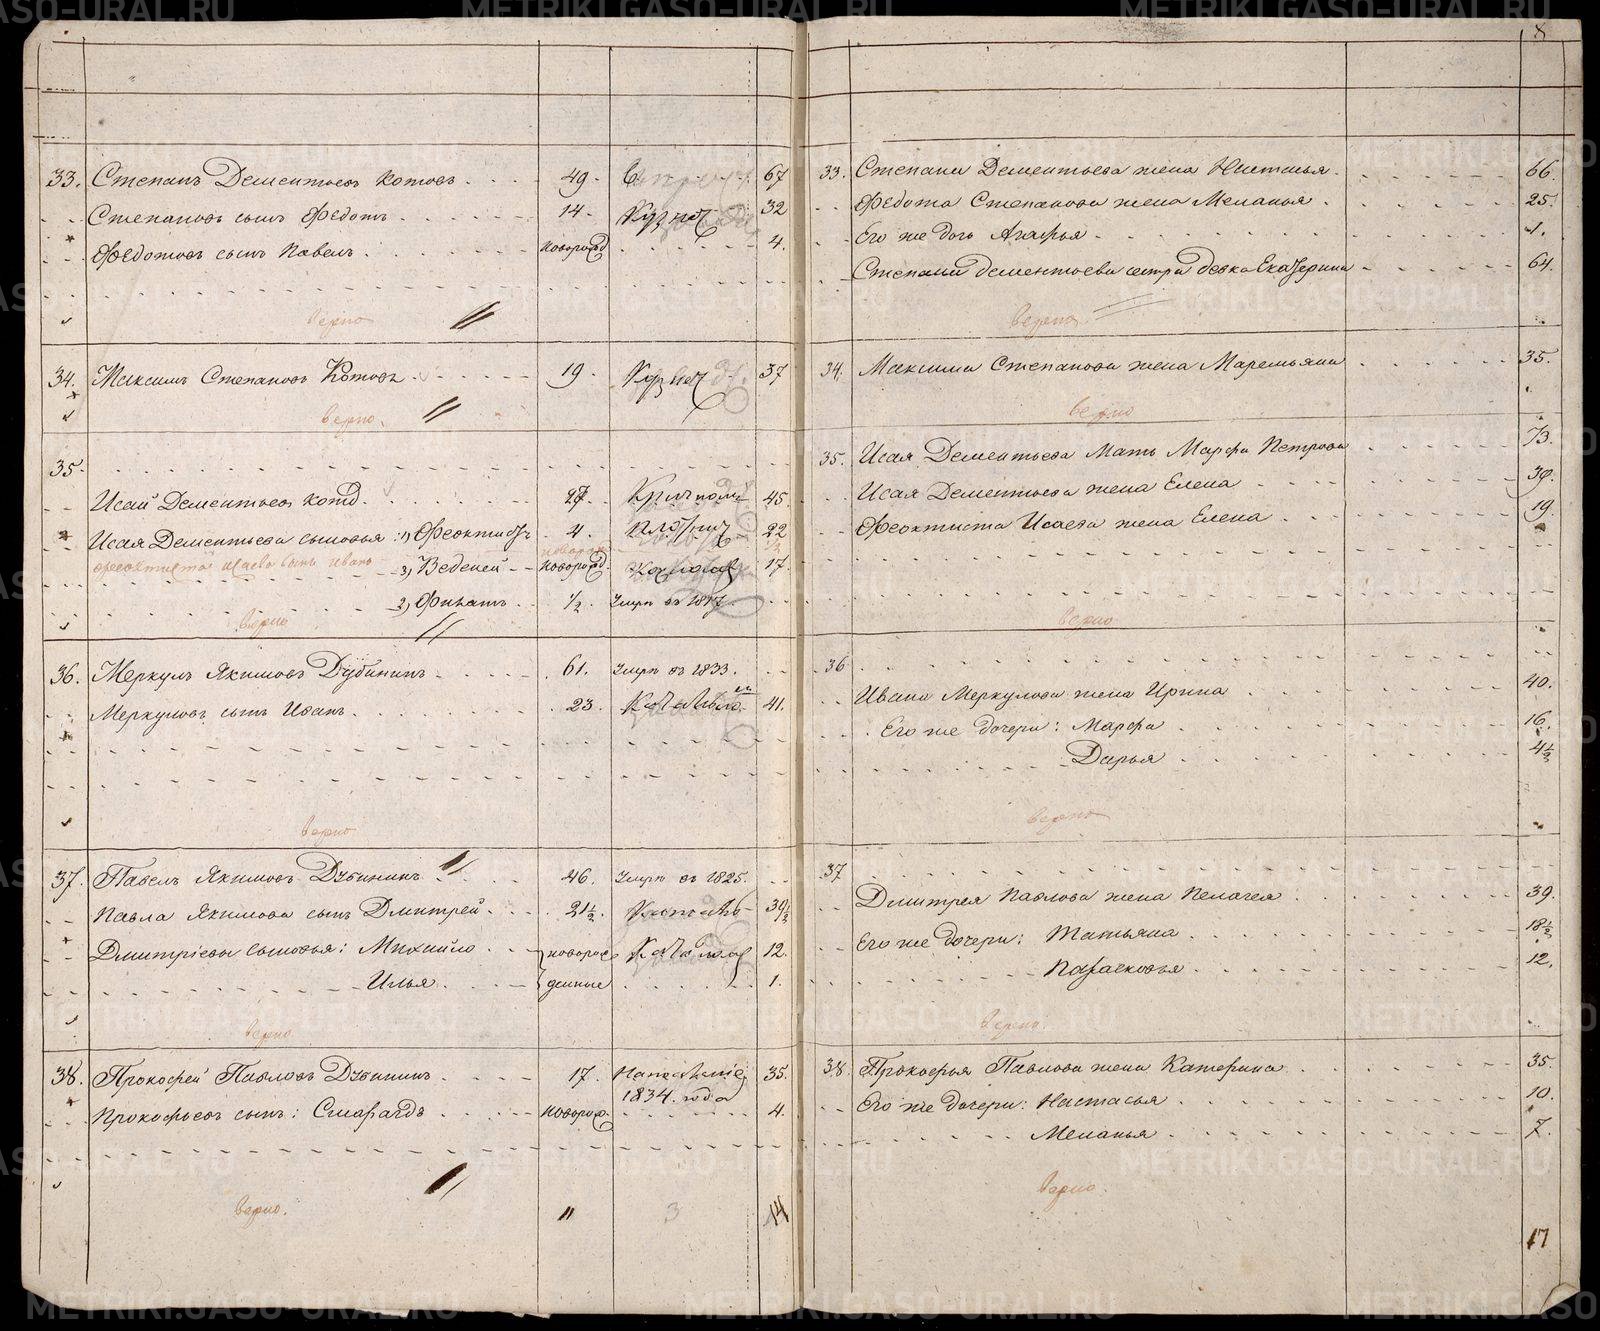 8
33. Степанъ Дементьевъ Котовъ 49. 67
Степановъ сынъ Федотъ 14. Кузнец 32
Федотовъ сынъ Павелъ новорожд 4.
верно
34. Максимъ Степановъ Котовъ 19. Кузнец 37
верно
35.
Исай Дементьевъ Котов 27. 45
Исая Дементьева сыновья: 1) Феоктистъ 4. плотник 22
феоктиста исаева сынъ иванъ новорож 1/2
3) Веденей новорожд. 17.
2) Филатъ 1/2. Умръ въ 1817.
верно
36. Меркулъ Якимовъ Дубининъ 61. Умръ въ 1833.
Меркуловъ сынъ Иванъ 23. 41.
верно
37. Павелъ Якимовъ Дубининъ 46. Умръ въ 1825.
Павла Якимова сынъ Дмитрей 21 1/2. 39 1/2
Дмитріевы сыновья: Михайло новорож 12.
Илья денные 1.
верно
38. Прокофей Павловъ Дубининъ 17. 35.
1834. года
Прокофьевъ сынъ: Смарагдъ новорож. 4.
верно.
" 3 14
33. Степана Дементьева жена Настасья 66.
Федота Степанова жена Меланья 25.
Его же дочь Агафья 1.
Степана Дементьева сестра девка Екатерина 64.
верно
34. Максима Степанова жена Маремьяна 35.
верно
35. Исая Дементьева Мать Марфа Петрова 73.
Исая Дементьева жена Елена 39.
Феоктиста Исаева жена Елена 19.
верно
36
Ивана Меркулова жена Ирина 40.
Его же дочери: Марфа 16.
Дарья 4 1/2
верно
37
Дмитрея Павлова жена Пелагея 39.
Его же дочери: Татьяна 18 1/2
Парасковья 12.
верно
38. Прокофья Павлова жена Катерина 35.
Его же дочери: Настасья 10.
Меланья 7.
верно.
17
METRIKI.GASO-URAL.RU